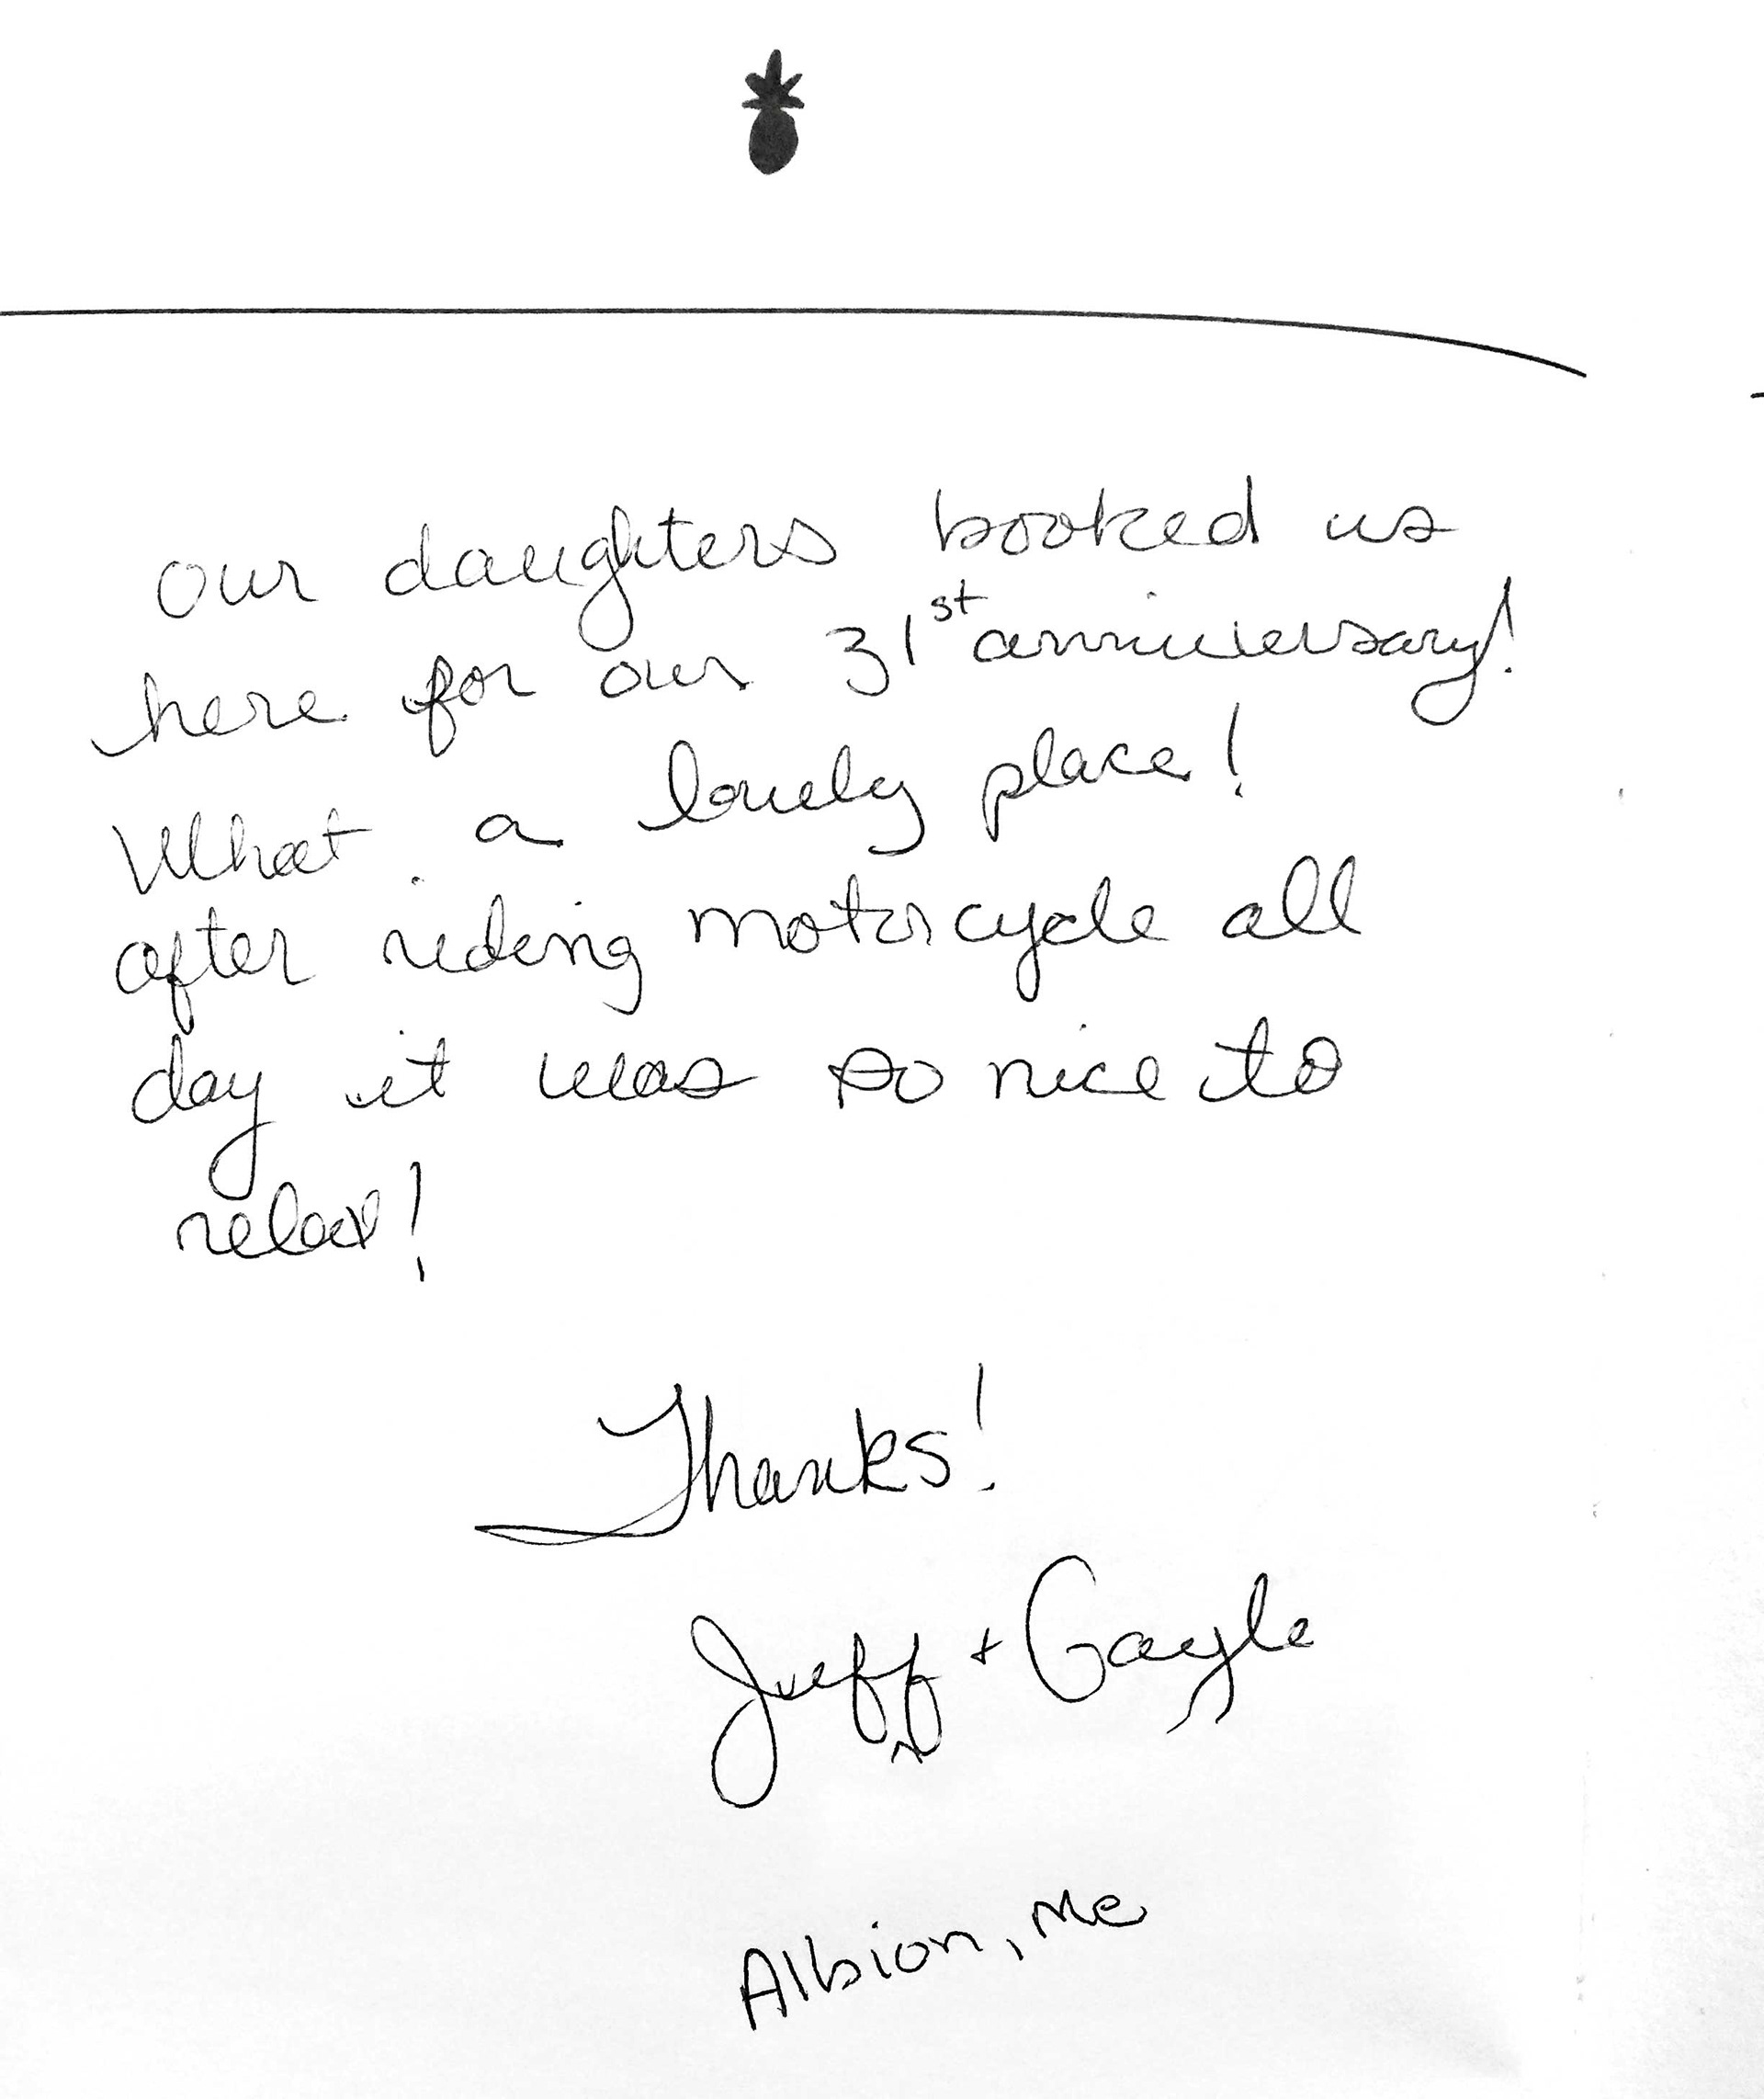 our daughters booked us
here for our 31st anniversary!
What a lovely place!
after riding motorcycle all
day it was so nice to
relax!
Thanks!
Jeff + Gayle
Albion, Me